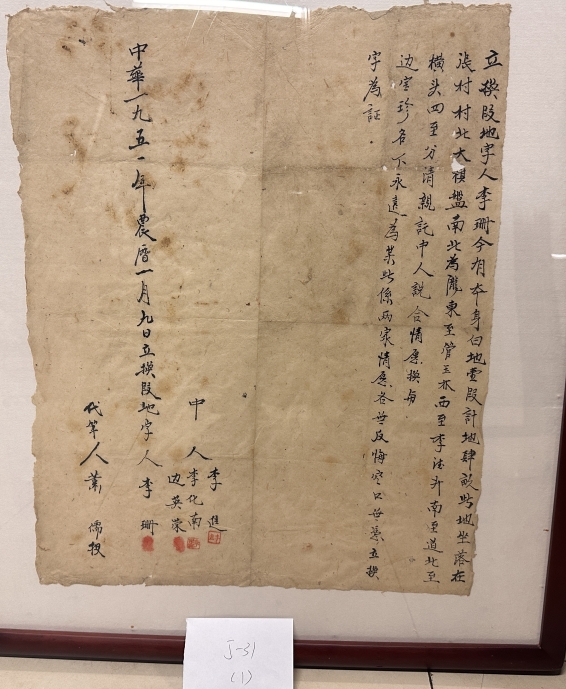 立換段地字人李珊今有本身白地壹段計地肆畝此地坐落在
張村村北大棋盤南北為隴東至管三水西至李法升南至道北至
橫头四至分清親託中人説合情愿換与
边宝珍名下永遠為業此係兩家情愿各無反悔空口無憑立換
字為証
中人
李進
李化南
边英荣
中華一九五一年農曆一月九日立換段地字人李珊
代筆人葉儒
J-31
(1)